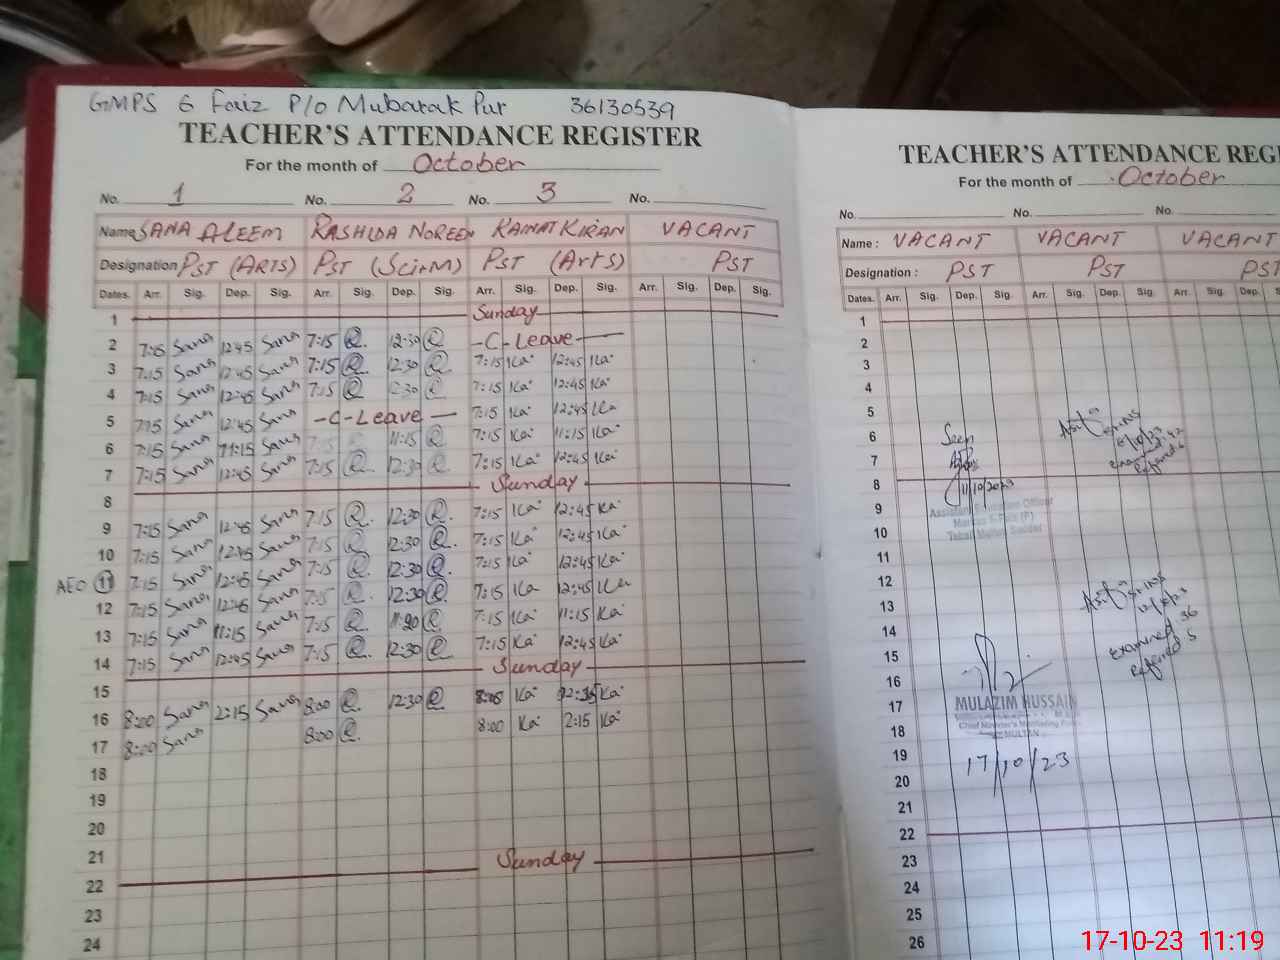 GMPS 6 Faiz P/O Mubarak Pur 36130539
TEACHER'S ATTENDANCE REGISTER
For the month of October
No. 1 No. 2 No. 3 No.
Name SANA ALEEM RASHIDA NOREEN KAINAT KIRAN VACANT
Designation PST (ARTS) PST (Sci+M) PST (Arts) PST
Dates. Arr. Sig. Dep. Sig. Arr. Sig. Dep. Sig. Arr. Sig. Dep. Sig. Arr. Sig. Dep. Sig.
1 Sunday
2 7:15 Sana 12:45 Sana 7:15 R. 12:30 R -C-Leave-
3 7:15 Sana 12:45 Sana 7:15 R 12:30 R 7:15 Ka 12:45 Ka
4 7:15 Sana 12:45 Sana 7:15 R :30 R 7:15 Ka 12:45 Ka
5 7:15 Sana 12:45 Sana -C-Leave- 7:15 Ka 12:45 Ka
6 7:15 Sana 11:15 Sana 7:15 11:15 R 7:15 Ka 11:15 Ka
7 7:15 Sana 12:45 Sana 7:15 R 12:30 R 7:15 Ka 12:45 Ka
8 Sunday
9 7:15 Sana 12:45 Sana 7:15 R. 12:30 R. 7:15 Ka 12:45 Ka
10 7:15 Sana 12:45 Sana 7:15 R 12:30 R. 7:15 Ka 12:45 Ka
AEO 11 7:15 Sana 12:45 Sana 7:15 R. 12:30 R. 7:15 Ka 12:45 Ka
12 7:15 Sana 12:45 Sana 7:15 R. 12:30 R. 7:15 Ka 12:45 Ka
13 7:15 Sana 11:15 Sana 7:15 R. 11:20 R 7:15 Ka 11:15 Ka
14 7:15 Sana 12:45 Sana 7:15 R. 12:30 R 7:15 Ka 12:45 Ka
15 Sunday
16 8:00 Sana 2:15 Sana 8:00 R. 12:30 R Ka Ka
17 8:00 Sana 8:00 R. 8:00 Ka 2:15 Ka
18
19
20
21
22 Sunday
23
24
TEACHER'S ATTENDANCE REGI
For the month of October
No. No. No.
Name : VACANT VACANT VACANT
Designation : PST PST PST
Dates. Arr. Sig. Dep. Sig. Arr. Sig. Dep. Sig. Arr. Sig. Dep. S
1
2
3
4
5
6 Seen
7
8 11/10/2023
9 Assistant Education Officer
10
11
12
13
14
15 Examined 36
16 Referred 5
17 MULAZIM HUSSAIN
18 MULTAN
19 17/10/23
20
21
22
23
24
25
26
17-10-23 11:19